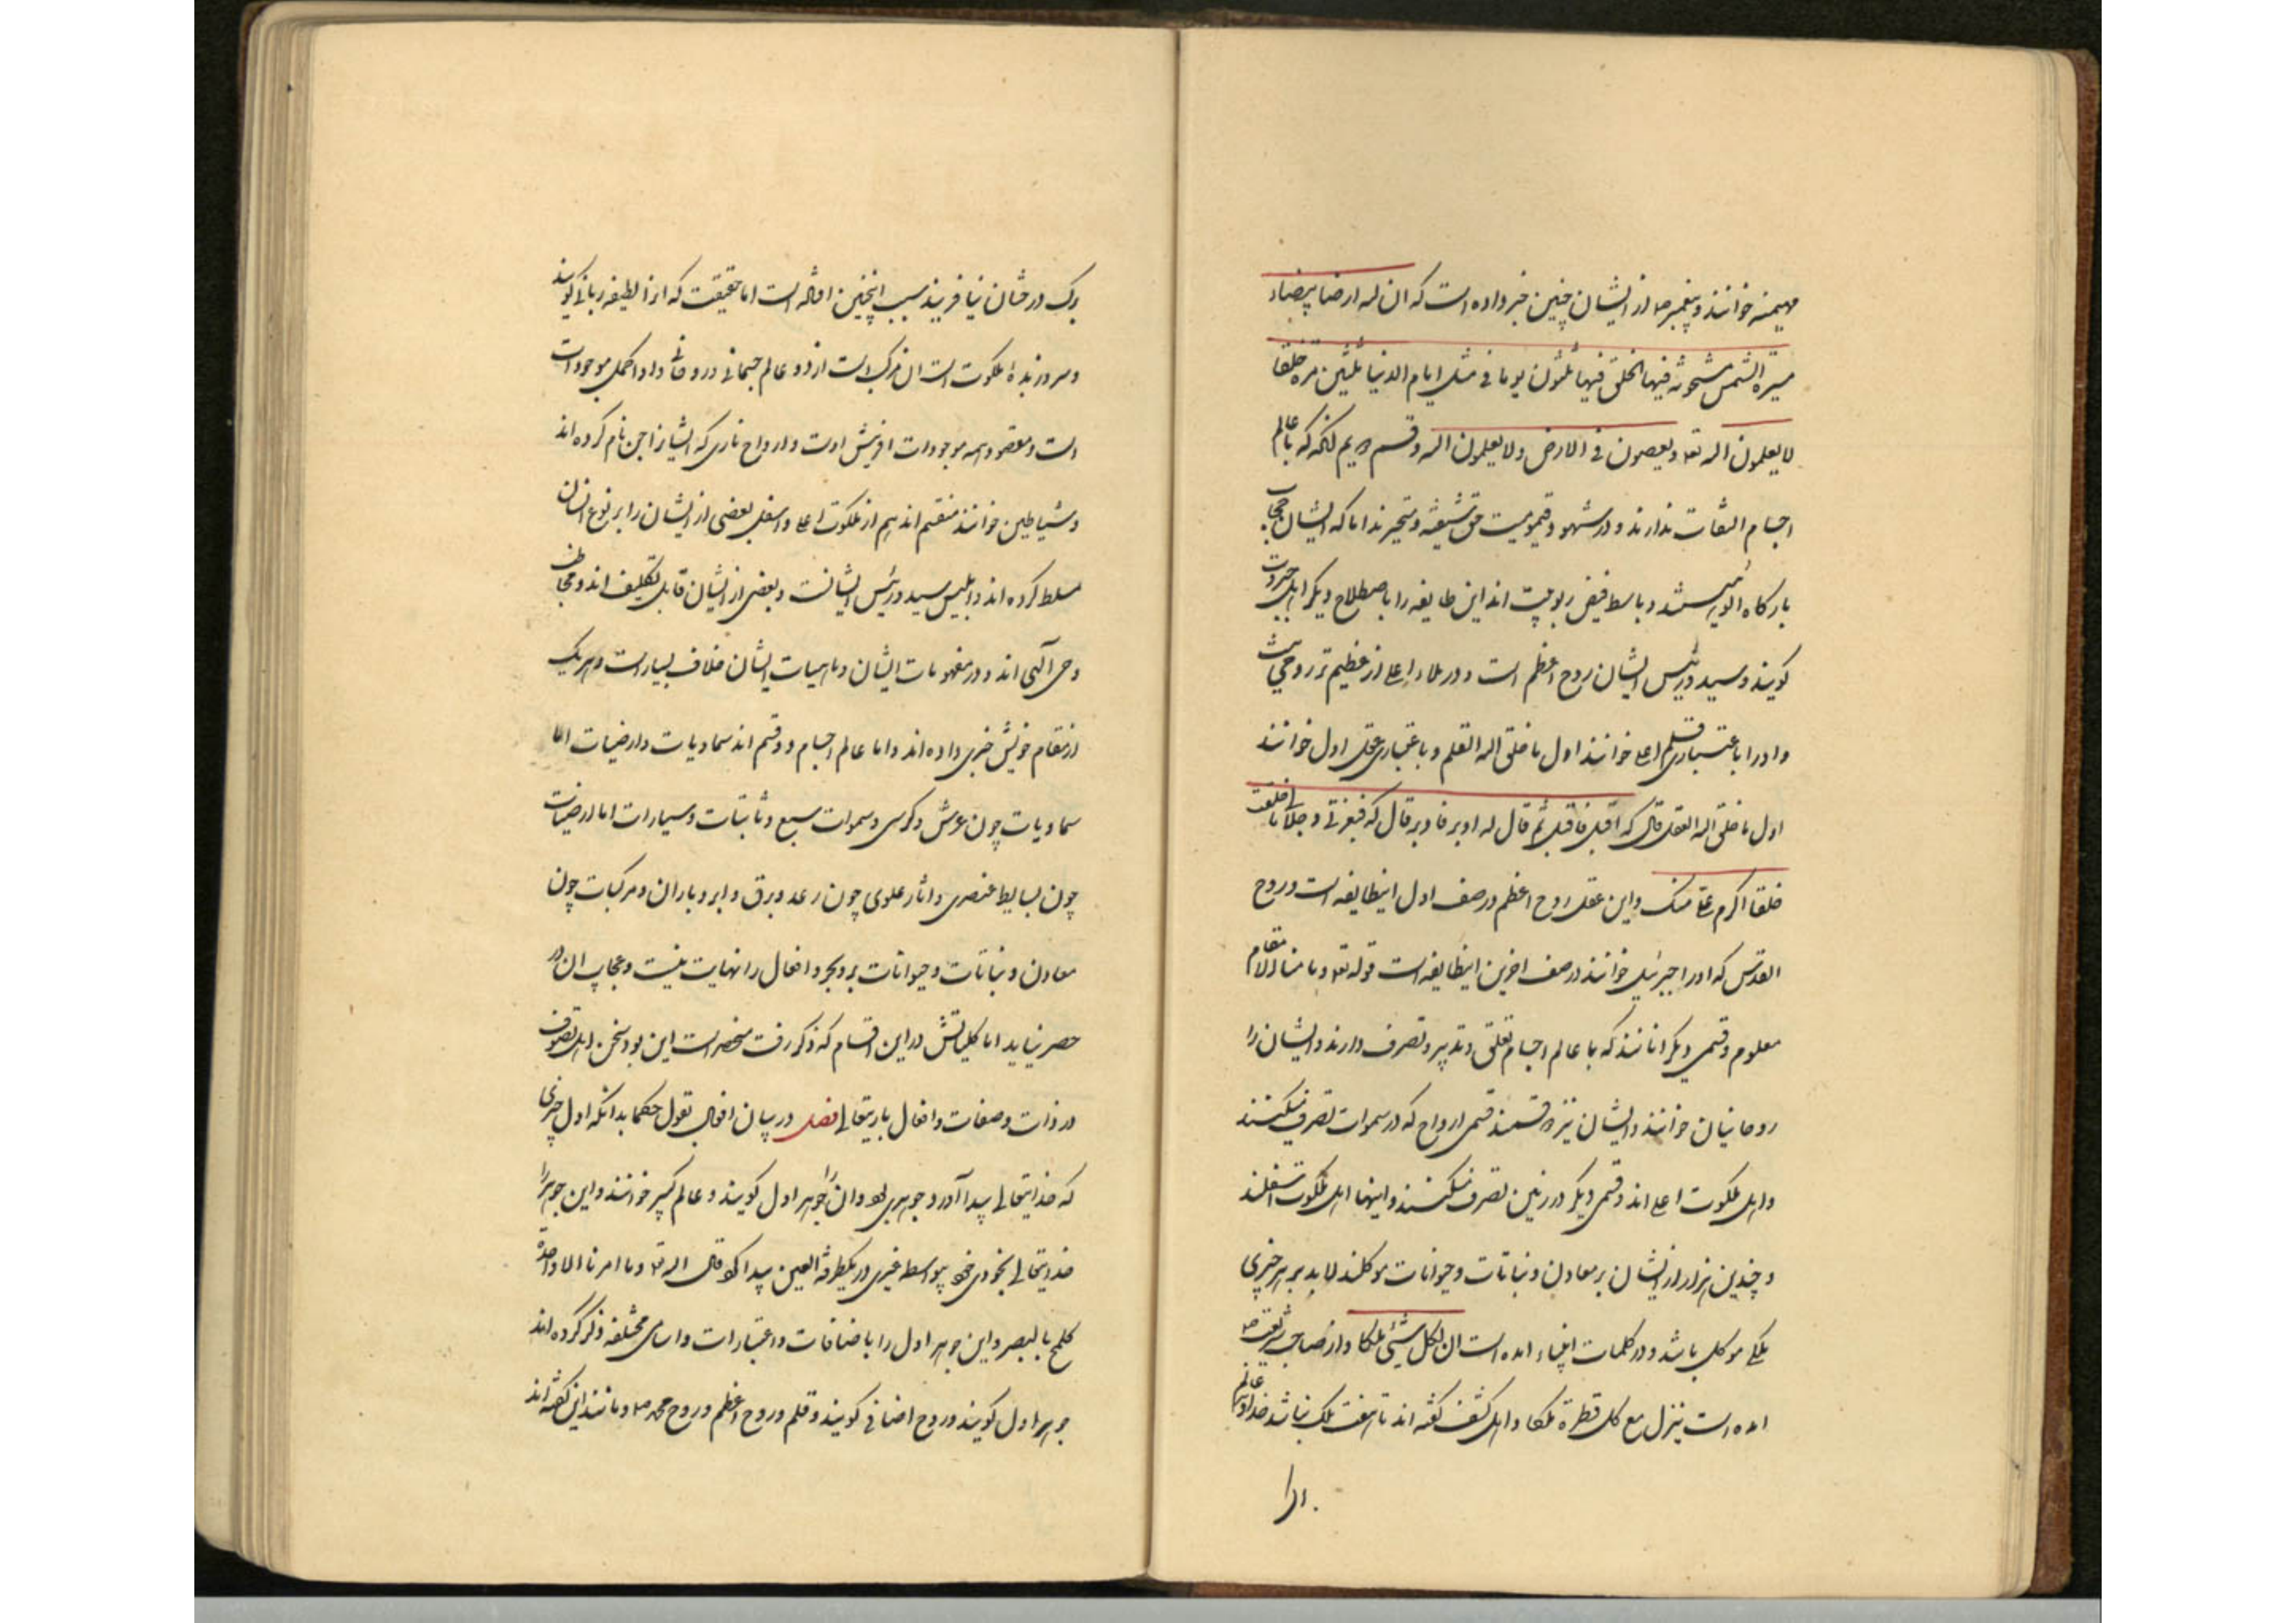 مهیمنه خوانند و پیغمبر ص از ایشان چنین خبر داده است که ان لله ارضا بیضاء
مسیرة الشمس مشحونه فیها الخلق فیها ثلثون یوما فی مثل ایام الدنیا ثلثین مره خلقا
لا یعلمون الله تعه و یعصون فی الارض ولا یعلمون الله و قسم دیم انکه که با عالم
اجسام التفات ندارند و در شهود قیومیت حق شیفته و متحیرند اما که ایشان حجاب
بارکاه الوهیتند و باسط فیض ربوبیت اند این طایفه را باصطلاح دیکر اهل جبروت
کویند و سید و رئیس ایشان روح اعظم است و در ملاء اعلی از عظیم تر روحی نیست
و او را باعتباری قلم اعلی خوانند اول ما خلق الله القلم و باعتباری عقل اول خوانند
اول ما خلق الله العقل قال که اقبل فاقبل ثم قال له ادبر فادبر قال که فبعزتی و جلالی ما خلقت
خلقا اکرم علی منک و این عقل روح اعظم در صف اول اینطایفه است و روح
القدس که او را جبرئیل خوانند در صف اخرین اینطایفه است قوله تعه و ما منا الا له مقام
معلوم و قسمی دیکر انانند که با عالم اجسام تعلق و تدبیر و تصرف دارند و ایشان را
روحانیان خوانند و ایشان نیز دو قسمند قسمی ارواح که در سموات تصرف میکنند
و اهل ملکوت اعلی اند و قسمی دیکر در زمین تصرف میکنند و اینها اهل ملکوت اسفلند
و چندین هزار از ایشان بر معادن و نباتات و حیوانات موکلند لابد بر هر چیزی
ملکی موکل باشد و در کلمات انبیاء امده است ان لکل شیئی ملکا و از صاحب شریعت ص
امده است ینزل مع کل قطرة ملکا و اهل کشف کفته اند تا هفت ملک نباشد خداوند عالم
برک در ختان نیافریند سبب اینچنین افاله است اما حقیقت که انرا لطیفه ربانی کویند
و سر وزبده ملکوت است ان مرکب است از دو عالم جسمانی و روحانی و او اکمل موجودات
است و مقصود همه موجودات افرینش اوست و ارواح ناری که ایشانرا جن نام کرده اند
و شیاطین خوانند منقسم اند هم از ملکوت اعلی و اسفل بعضی از ایشان را بر نوع انسان
مسلط کرده اند و ابلیس سید و رئیس ایشانست و بعضی از ایشان قابل تکلیف اند و مخاطب
وحی الهی اند و در مفهومات ایشان و ماهیات ایشان خلاف بسیار است و هر یک
از مقام خویش خبری داده اند و اما عالم اجسام دو قسم اند سماویات و ارضیات اما
سماویات چون عرش و کرسی و سموات سبع و ثابتات و سیارات اما ارضیات
چون بسایط عنصری و اثار علوی چون رعد و برق و ابر و باران و مرکبات چون
معادن و نباتات و حیوانات بر و بحر و افعال را نهایت نیست و عجایب ان در
حصر نیاید اما کلیاتش در این اقسام که ذکر رفت منحصر است این بود سخن اهل تصوف
در ذات و صفات و افعال باریتعالی فصل در بیان افعال بقول حکما بدانکه اول چیزی
که خدایتعالی پیدا آورد جوهری بود و ان را جوهر اول کویند و عالم کبیر خوانند و این جوهر را
خدایتعالی بخودی خود بیواسطه غیری در یکطرفة العین پیدا کرد قال الله تعه و ما امرنا الا واحدة
کلمح بالبصر و این جوهر اول را باضافات و اعتبارات و اسامی مختلفه ذکر کرده اند
جوهر اول کویند و روح اضافی کویند و قلم و روح اعظم و روح محمد ص و مانند این کفته اند